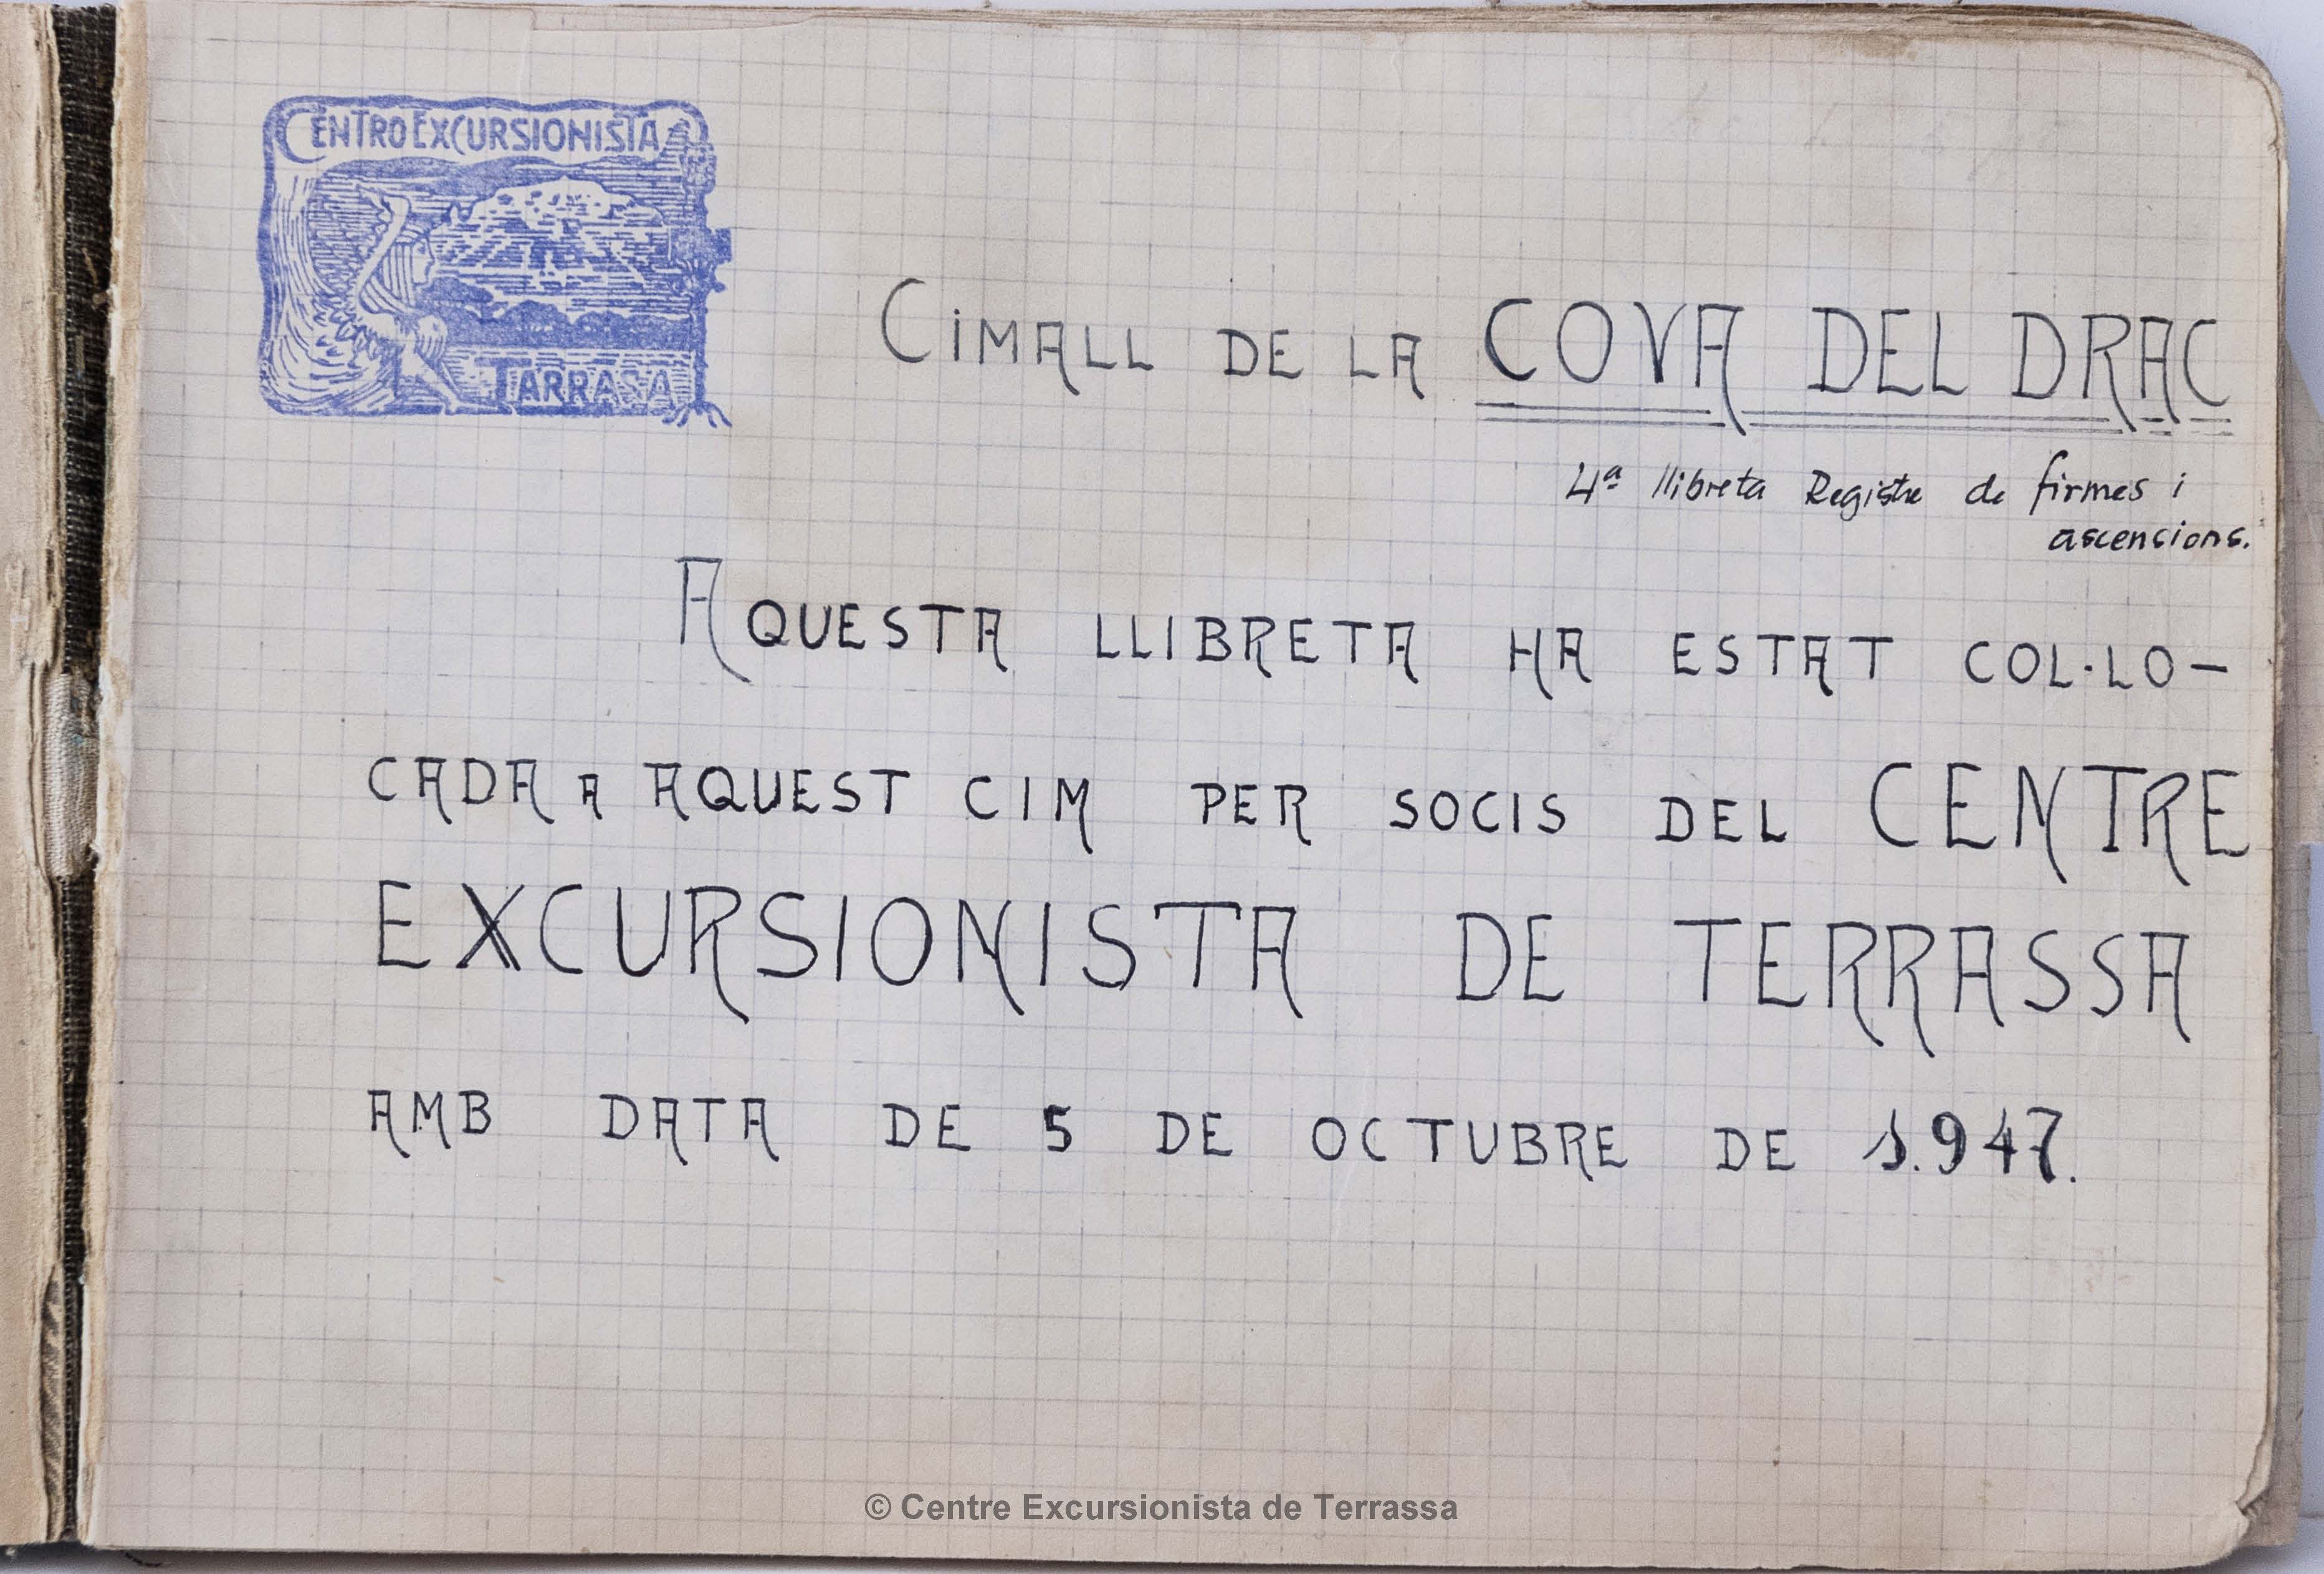 CENTRO EXCURSIONISTA
TARRASA
CIMALL DE LA COVA DEL DRAC
4ª llibreta Registre de firmes i
ascencions.
AQUESTA LLIBRETA HA ESTAT COL·LO-
CADA A AQUEST CIM PER SOCIS DEL CENTRE
EXCURSIONISTA DE TERRASSA
AMB DATA DE 5 DE OCTUBRE DE 1.947.
© Centre Excursionista de Terrassa